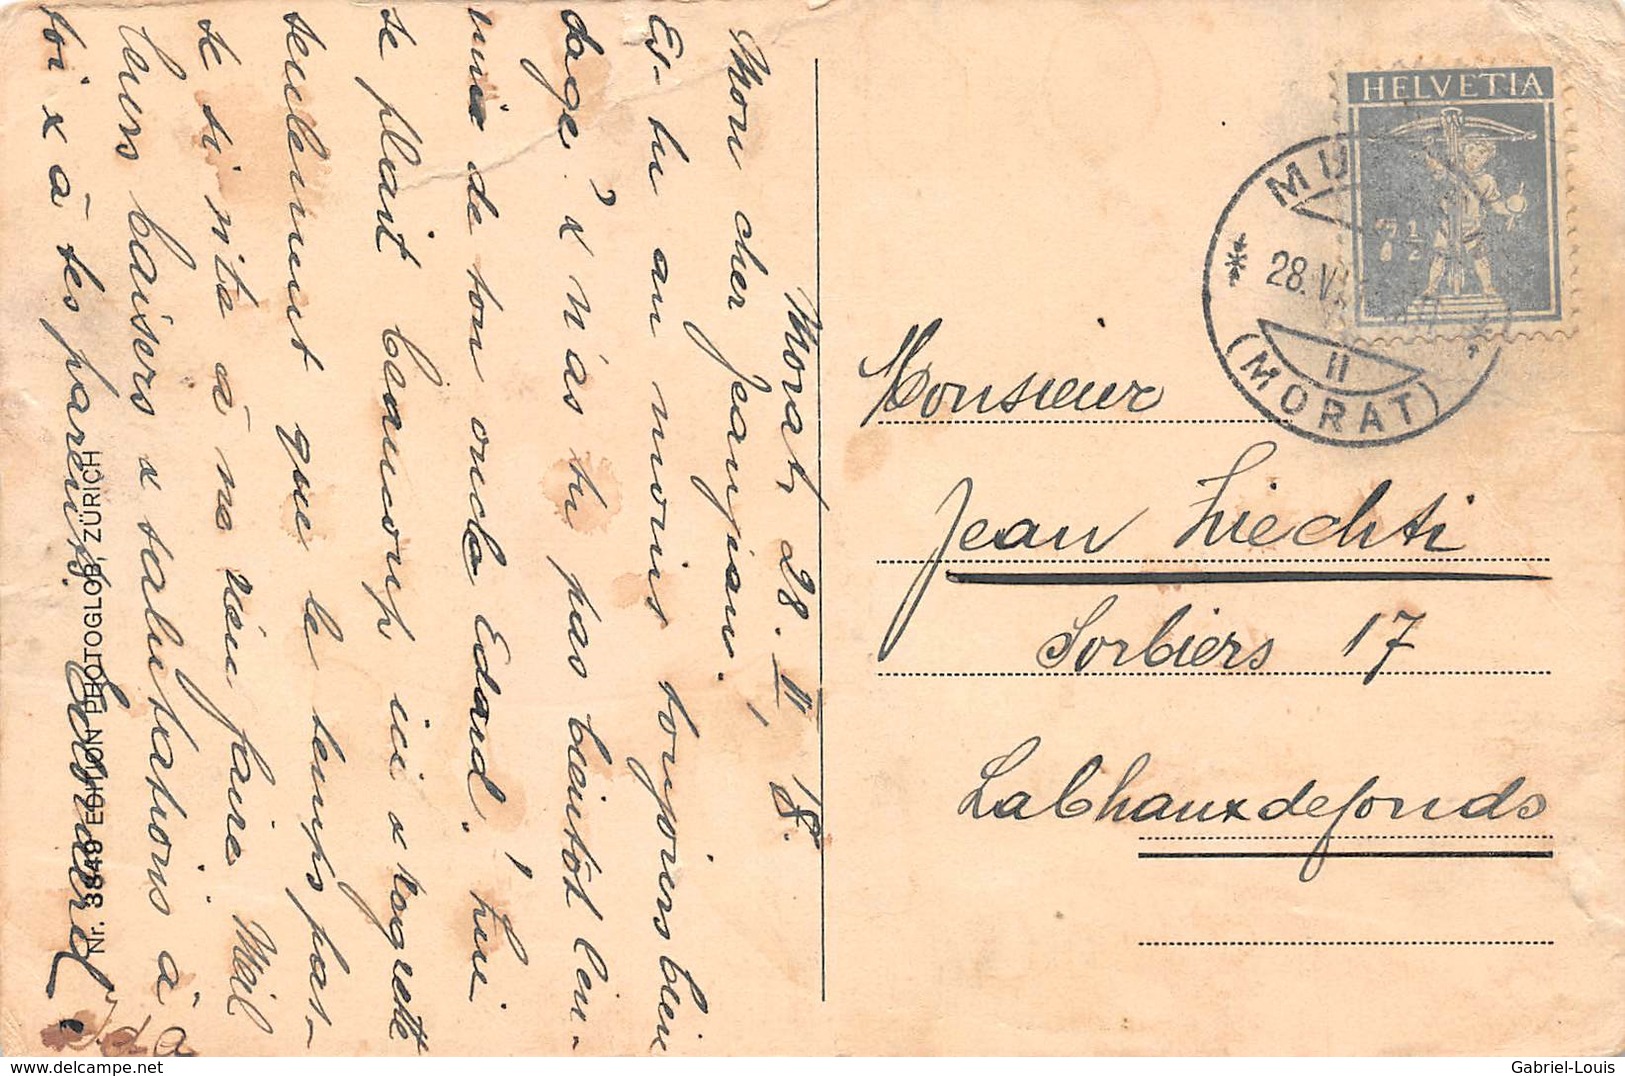 Morat, 28. II, 18.
Mon cher Jeanjean.
Es-tu au moins toujours bien
sage? x n'as tu pas bientôt l'en-
vie de ton oncle Edard. Lui
se plait beaucoup ici x regrette
seulement que le temps pas-
se si vite à ne rien faire. Meil
leurs baisers x salutations à
toi x à tes parents.
Edouard
Nr. 3849 EDITION PHOTOGLOB, ZÜRICH
HELVETIA
7 1/2
MU
28. VI
II
(MORAT)
Monsieur
Jean Liechti
Sorbiers 17
LaChauxdefonds
Gabriel-Louis
delcampe.net